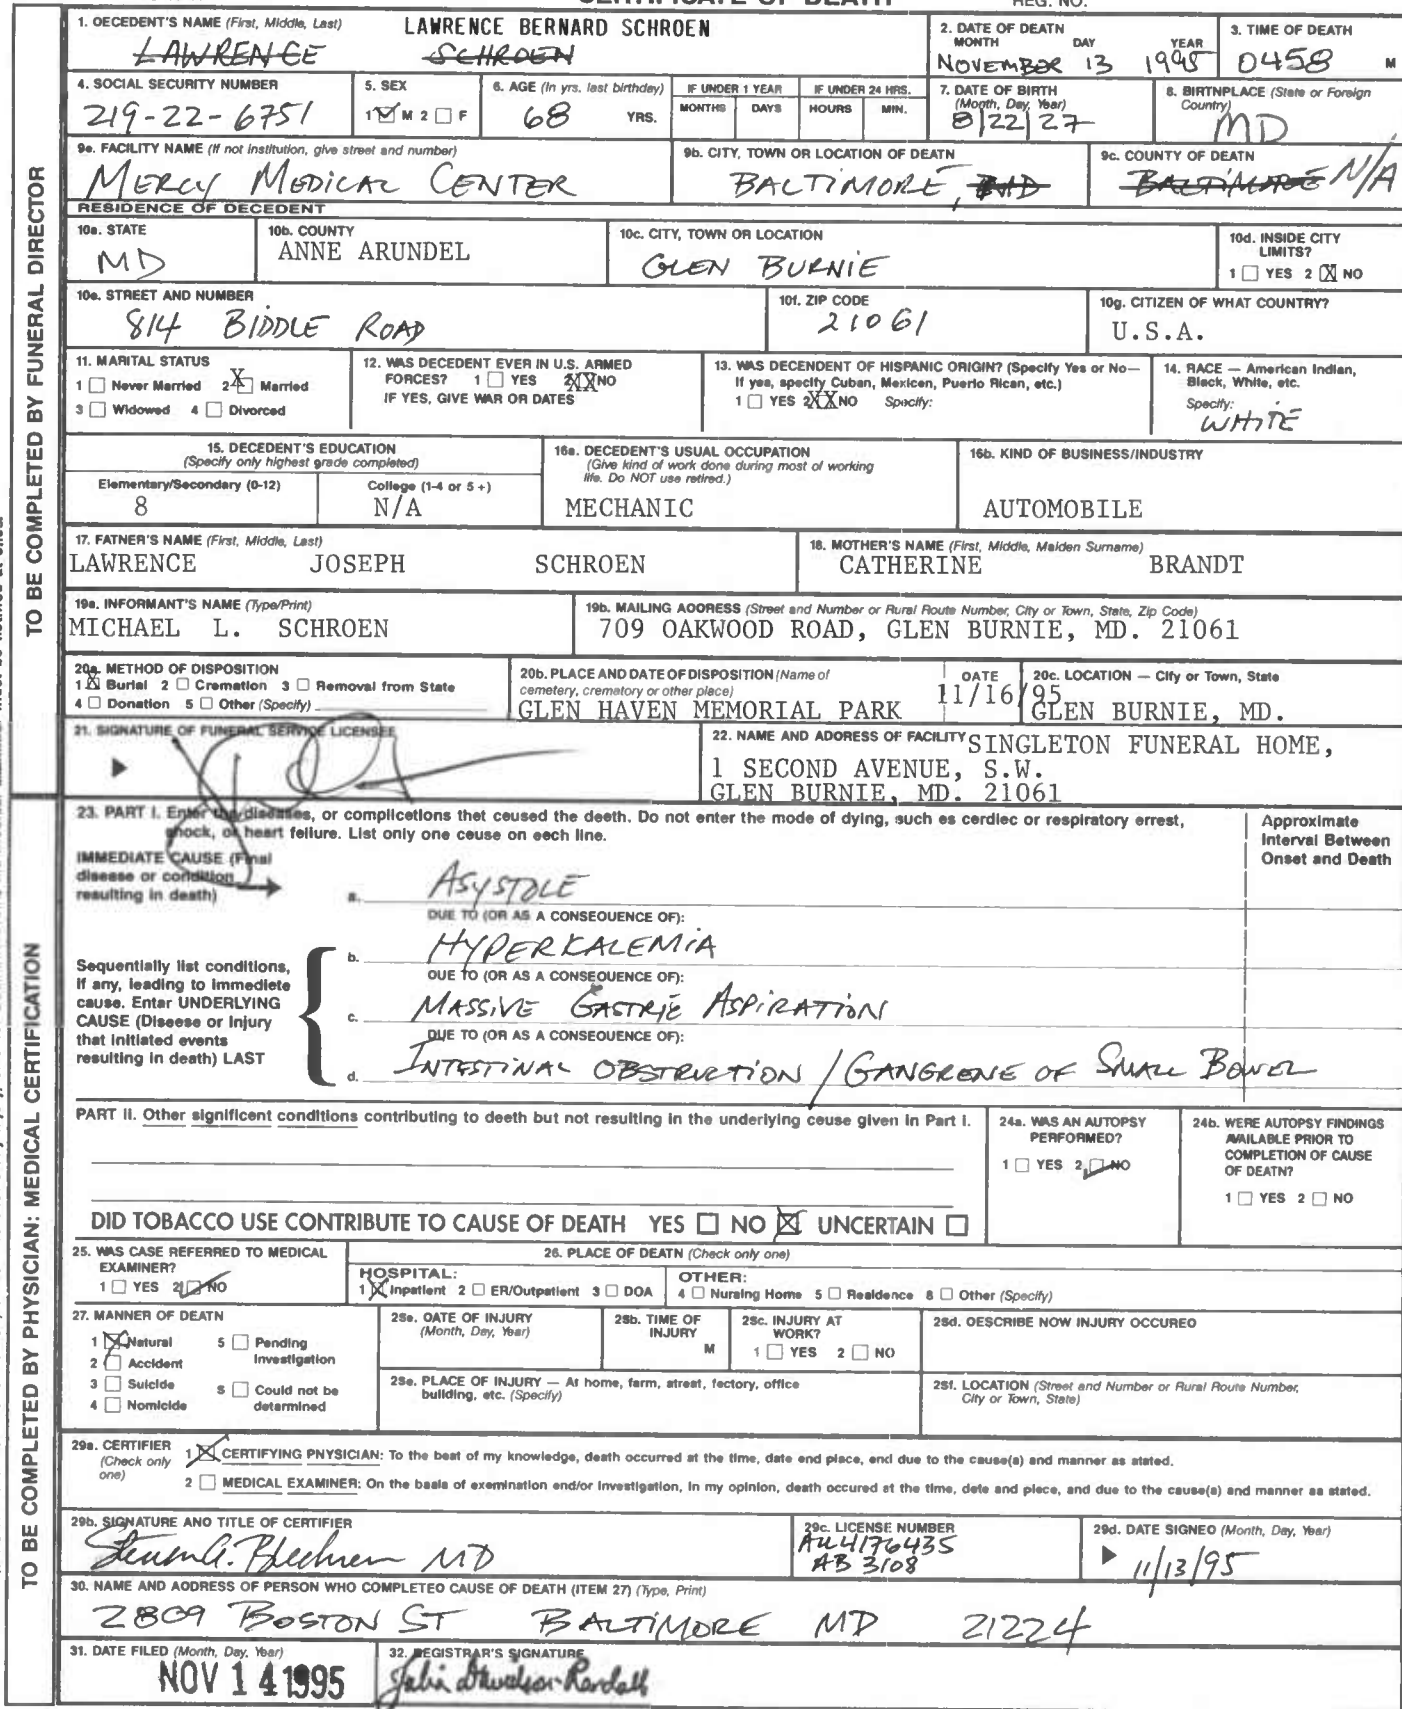 CERTIFICATE OF DEATH REG. NO.
TO BE COMPLETED BY FUNERAL DIRECTOR
1. OECEDENT'S NAME (First, Middle, Last) LAWRENCE BERNARD SCHROEN
LAWRENCE SCHROEN
2. DATE OF DEATN
MONTH DAY YEAR
NOVEMBER 13 1995
3. TIME OF DEATH
0458 M
4. SOCIAL SECURITY NUMBER
219-22-6751
5. SEX
1 M 2 F
6. AGE (In yrs. last birthday)
68 YRS.
IF UNDER 1 YEAR
MONTHS DAYS
IF UNDER 24 HRS.
HOURS MIN.
7. DATE OF BIRTH
(Month, Day, Year)
8/22/27
8. BIRTNPLACE (State or Foreign
Country)
MD
9e. FACILITY NAME (If not institution, give street and number)
MERCY MEDICAL CENTER
9b. CITY, TOWN OR LOCATION OF DEATH
BALTIMORE, MD
9c. COUNTY OF DEATH
BALTIMORE N/A
RESIDENCE OF DECEDENT
10a. STATE
MD
10b. COUNTY
ANNE ARUNDEL
10c. CITY, TOWN OR LOCATION
GLEN BURNIE
10d. INSIDE CITY
LIMITS?
1 YES 2 X NO
10e. STREET AND NUMBER
814 BIDDLE ROAD
10f. ZIP CODE
21061
10g. CITIZEN OF WHAT COUNTRY?
U.S.A.
11. MARITAL STATUS
1 Never Married 2 X Married
3 Widowed 4 Divorced
12. WAS DECEDENT EVER IN U.S. ARMED
FORCES? 1 YES 2 XX NO
IF YES, GIVE WAR OR DATES
13. WAS DECENDENT OF HISPANIC ORIGIN? (Specify Yes or No—
If yes, specify Cuban, Mexican, Puerto Rican, etc.)
1 YES 2 XX NO Specify:
14. RACE — American Indian,
Black, White, etc.
Specify:
WHITE
15. DECEDENT'S EDUCATION
(Specify only highest grade completed)
Elementary/Secondary (0-12) College (1-4 or 5 +)
8 N/A
16a. DECEDENT'S USUAL OCCUPATION
(Give kind of work done during most of working
life. Do NOT use retired.)
MECHANIC
16b. KIND OF BUSINESS/INDUSTRY
AUTOMOBILE
17. FATNER'S NAME (First, Middle, Last)
LAWRENCE JOSEPH SCHROEN
18. MOTHER'S NAME (First, Middle, Maiden Surname)
CATHERINE BRANDT
19a. INFORMANT'S NAME (Type/Print)
MICHAEL L. SCHROEN
19b. MAILING AOORESS (Street and Number or Rural Route Number, City or Town, State, Zip Code)
709 OAKWOOD ROAD, GLEN BURNIE, MD. 21061
20a. METHOD OF DISPOSITION
1 X Burial 2 Cremation 3 Removal from State
4 Donation 5 Other (Specify)
20b. PLACE AND DATE OF DISPOSITION (Name of
cemetery, crematory or other place)
GLEN HAVEN MEMORIAL PARK
DATE
11/16/95
20c. LOCATION — City or Town, State
GLEN BURNIE, MD.
21. SIGNATURE OF FUNERAL SERVICE LICENSEE
22. NAME AND ADORESS OF FACILITY SINGLETON FUNERAL HOME,
1 SECOND AVENUE, S.W.
GLEN BURNIE, MD. 21061
TO BE COMPLETED BY PHYSICIAN: MEDICAL CERTIFICATION
23. PART I. Enter the diseases, or complicetions thet ceused the deeth. Do not enter the mode of dying, such es cerdiec or respiratory errest,
shock, or heart feilure. List only one ceuse on eech line.
Approximate
Interval Between
Onset and Death
IMMEDIATE CAUSE (Final
disease or condition
resulting in death)
a. ASYSTOLE
DUE TO (OR AS A CONSEOUENCE OF):
b. HYPERKALEMIA
OUE TO (OR AS A CONSEQUENCE OF):
c. MASSIVE GASTRIC ASPIRATION
DUE TO (OR AS A CONSEOUENCE OF):
d. INTESTINAL OBSTRUCTION / GANGRENE OF SMALL BOWEL
Sequentially list conditions,
if any, leading to immediete
cause. Enter UNDERLYING
CAUSE (Diseese or Injury
that initiated events
resulting in death) LAST
PART II. Other significent conditions contributing to deeth but not resulting in the underlying ceuse given in Part I.
24a. WAS AN AUTOPSY
PERFORMED?
1 YES 2 NO
24b. WERE AUTOPSY FINDINGS
AVAILABLE PRIOR TO
COMPLETION OF CAUSE
OF DEATN?
1 YES 2 NO
DID TOBACCO USE CONTRIBUTE TO CAUSE OF DEATH YES NO X UNCERTAIN
25. WAS CASE REFERRED TO MEDICAL
EXAMINER?
1 YES 2 NO
26. PLACE OF DEATN (Check only one)
HOSPITAL:
1 X Inpatient 2 ER/Outpatient 3 DOA
OTHER:
4 Nursing Home 5 Residence 6 Other (Specify)
27. MANNER OF DEATH
1 X Natural 5 Pending
2 Accident Investigation
3 Suicide S Could not be
4 Nomicide determined
28e. OATE OF INJURY
(Month, Day, Year)
28b. TIME OF
INJURY
M
28c. INJURY AT
WORK?
1 YES 2 NO
28d. OESCRIBE NOW INJURY OCCUREO
28e. PLACE OF INJURY — At home, farm, street, fectory, office
building, etc. (Specify)
28f. LOCATION (Street and Number or Rural Route Number,
City or Town, State)
29a. CERTIFIER
(Check only
one)
1 X CERTIFYING PNYSICIAN: To the best of my knowledge, death occurred at the time, date end place, end due to the cause(s) and manner as stated.
2 MEDICAL EXAMINER: On the basis of exemination end/or investigation, in my opinion, death occured at the time, dete and plece, and due to the cause(s) and manner as stated.
29b. SIGNATURE ANO TITLE OF CERTIFIER
MD
29c. LICENSE NUMBER
AU4176435
AB 3108
29d. DATE SIGNEO (Month, Day, Year)
11/13/95
30. NAME AND AODRESS OF PERSON WHO COMPLETEO CAUSE OF DEATH (ITEM 27) (Type, Print)
2809 BOSTON ST BALTIMORE MD 21224
31. DATE FILED (Month, Day, Year)
NOV 14 1995
32. REGISTRAR'S SIGNATURE
Julia Davidson-Randall